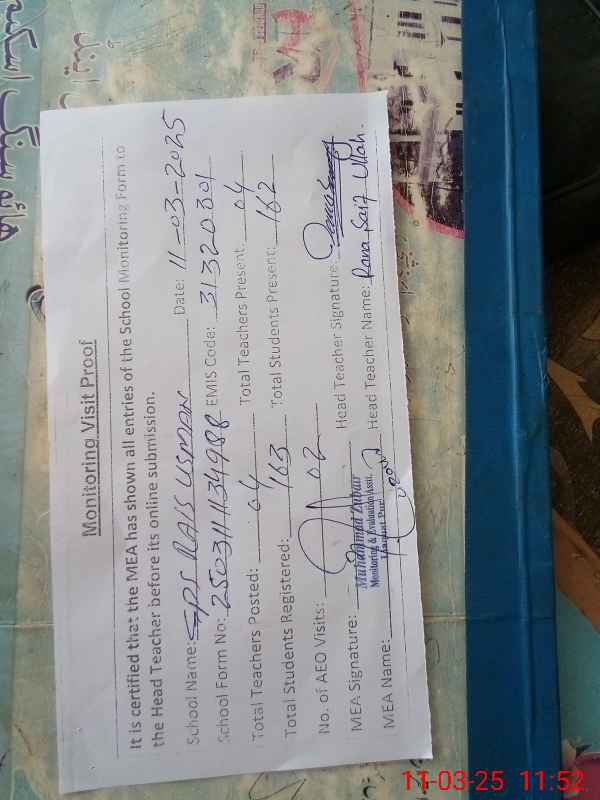 Monitoring Visit Proof
It is certified that the MEA has shown all entries of the School Monitoring Form to
the Head Teacher before its online submission.
School Name: GPS RAIS USMAN Date: 11-03-2025
School Form No: 250311134988 EMIS Code: 31320301
Total Teachers Posted: 04 Total Teachers Present: 04
Total Students Registered: 163 Total Students Present: 162
No. of AEO Visits: 02
MEA Signature: Head Teacher Signature:
Muhammad Zubair
Monitoring & Evaluation Asstt.
MEA Name: Head Teacher Name: Rana Saif Ullah.
11-03-25 11:52